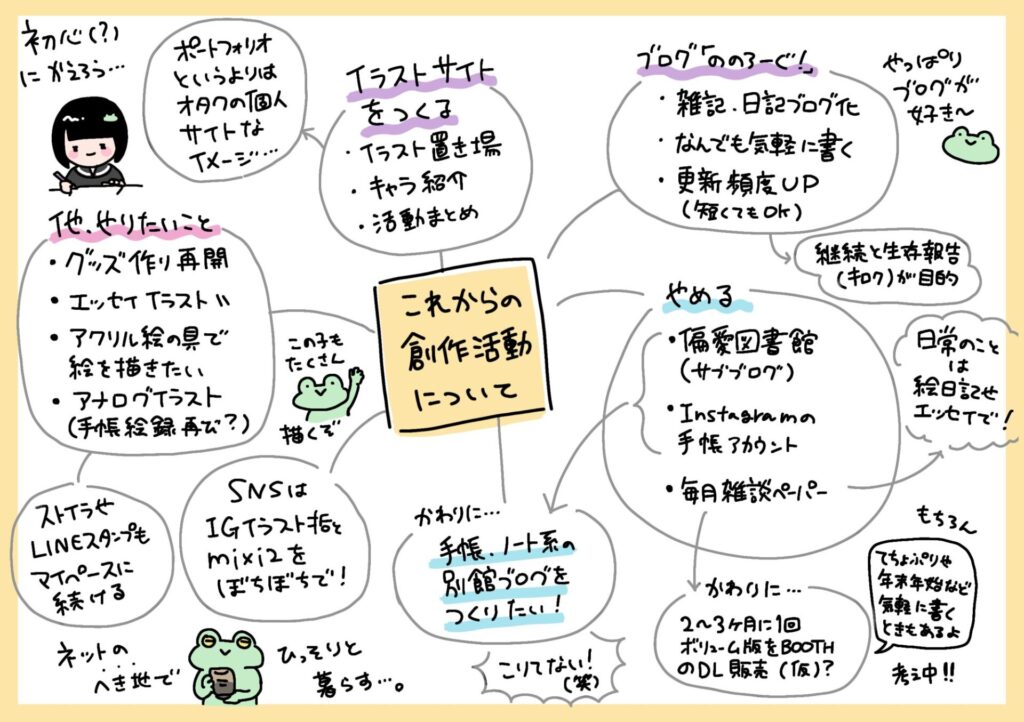 初心(?)
にかえろう…
ポートフォリオ
というよりは
オタクの個人
サイトな
イメージ…
イラストサイト
をつくる
・イラスト置き場
・キャラ紹介
・活動まとめ
ブログ「ののろーぐ!」
・雑記、日記ブログ化
・なんでも気軽に書く
・更新頻度UP
(短くてもOK)
やっぱり
ブログが
好き〜
継続と生存報告
(キロク)が目的
他、やりたいこと
・グッズ作り再開
・エッセイイラスト〃
・アクリル絵の具で
絵を描きたい
・アナログイラスト
(手帳絵録再び?)
この子も
たくさん
描くぞ
これからの
創作活動
について
やめる
・偏愛図書館
(サブブログ)
・Instagramの
手帳アカウント
・毎月雑談ペーパー
日常のこと
は
絵日記や
エッセイで!
ストイラや
LINEスタンプも
マイペースに
続ける
SNSは
IGイラスト垢と
mixi2を
ぼちぼちで!
かわりに…
手帳、ノート系の
別館ブログを
つくりたい!
こりてない!
(笑)
かわりに…
2〜3ヶ月に1回
ボリューム版をBOOTH
のDL販売(仮)?
もちろん
てちょぷりや
年末年始など
気軽に書く
ときもあるよ
考え中!!
ネットの
へき地で
ひっそりと
暮らす…。